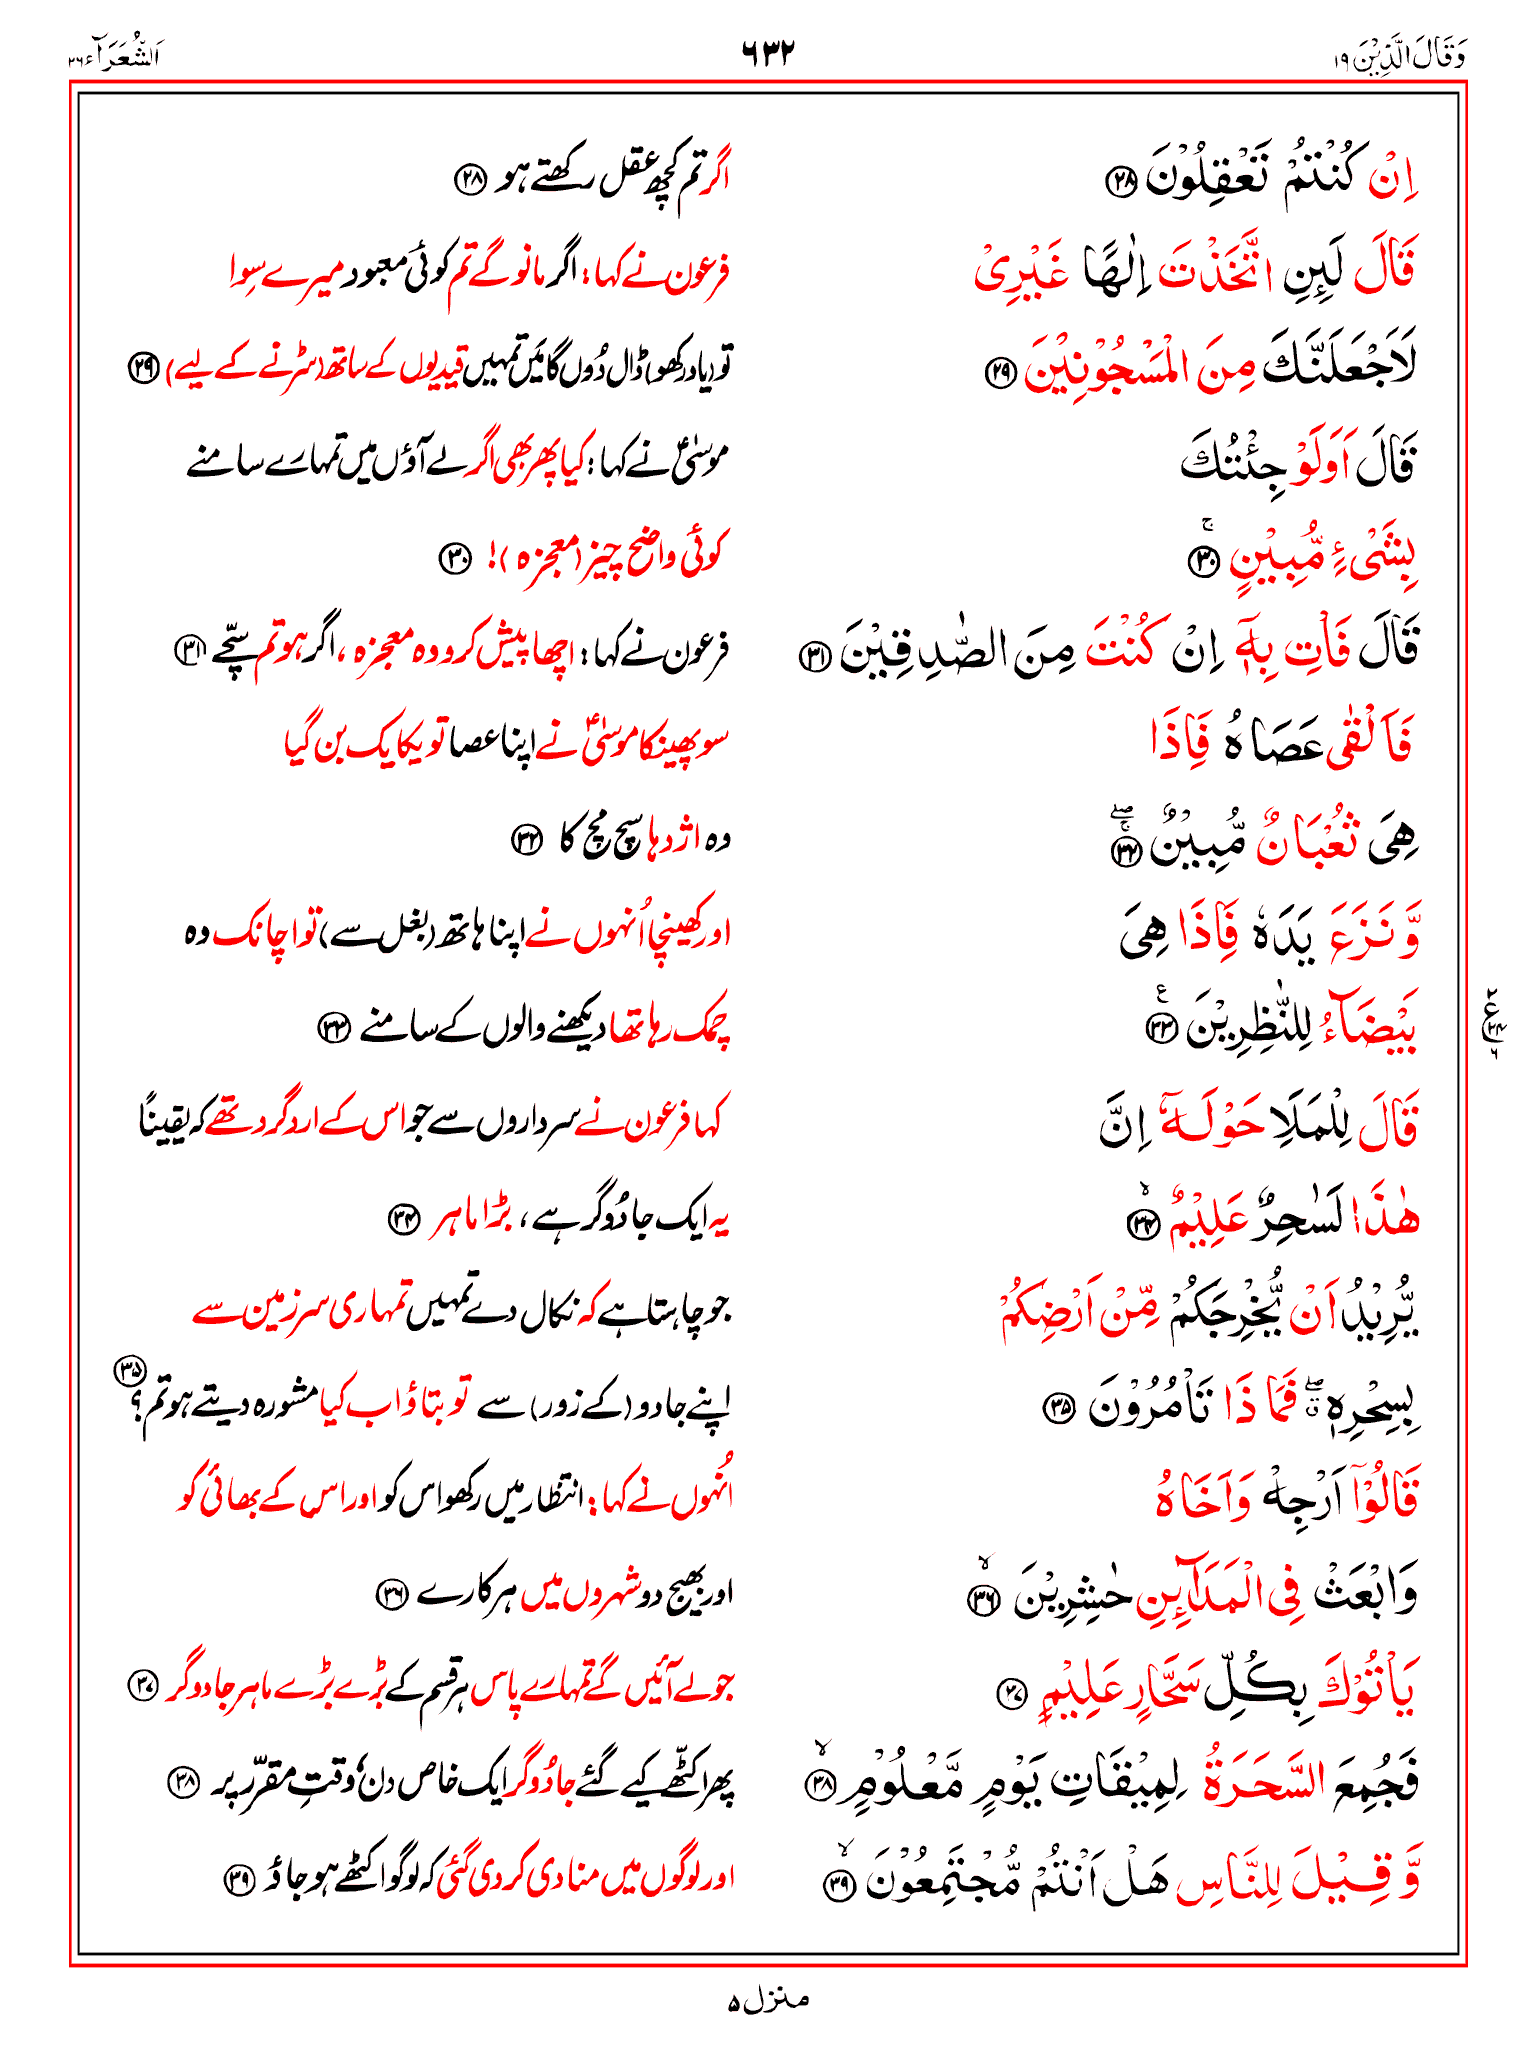 وَقَالَ الَّذِیْنَ ۱۹ ۶۳۲ اَلشُّعَرَآء ۲۶
اِنْ كُنْتُمْ تَعْقِلُوْنَ ۲۸ اگر تم کچھ عقل رکھتے ہو ۲۸
قَالَ لَىِٕنِ اتَّخَذْتَ اِلٰهًا غَیْرِیْ فرعون نے کہا: اگر مانو گے تم کوئی معبود میرے سِوا
لَاَجْعَلَنَّكَ مِنَ الْمَسْجُوْنِیْنَ ۲۹ تو (یاد رکھو) ڈال دُوں گا مَیں تمہیں قیدیوں کے ساتھ (سڑنے کے لیے) ۲۹
قَالَ اَوَلَوْ جِئْتُكَ موسیٰؑ نے کہا: کیا پھر بھی اگر لے آؤں میں تمہارے سامنے
بِشَیْءٍ مُّبِیْنٍ ۚ ۳۰ کوئی واضح چیز (معجزہ)! ۳۰
قَالَ فَاْتِ بِهٖۤ اِنْ كُنْتَ مِنَ الصّٰدِقِیْنَ ۳۱ فرعون نے کہا: اچھا پیش کرو وہ معجزہ، اگر ہو تم سچّے ۳۱
فَاَلْقٰی عَصَاهُ فَاِذَا سو پھینکا موسیٰؑ نے اپنا عصا تو یکایک بن گیا
هِیَ ثُعْبَانٌ مُّبِیْنٌ ۚۖ ۳۲ وہ اژدہا سچ مچ کا ۳۲
وَّ نَزَعَ یَدَهٗ فَاِذَا هِیَ اور کھینچا اُنہوں نے اپنا ہاتھ (بغل سے) تو اچانک وہ
بَیْضَآءُ لِلنّٰظِرِیْنَ ۠ ۳۳ چمک رہا تھا دیکھنے والوں کے سامنے ۳۳
۲ ع ۲۴ ۶
قَالَ لِلْمَلَاِ حَوْلَهٗۤ اِنَّ کہا فرعون نے سرداروں سے جو اس کے ارد گرد تھے کہ یقیناً
هٰذَا لَسٰحِرٌ عَلِیْمٌ ۙ ۳۴ یہ ایک جادُوگر ہے، بڑا ماہر ۳۴
یُّرِیْدُ اَنْ یُّخْرِجَكُمْ مِّنْ اَرْضِكُمْ جو چاہتا ہے کہ نکال دے تمہیں تمہاری سرزمین سے
بِسِحْرِهٖ ۖۗ فَمَا ذَا تَاْمُرُوْنَ ۳۵ اپنے جادو (کے زور) سے تو بتاؤ اب کیا مشورہ دیتے ہو تم؟ ۳۵
قَالُوْۤا اَرْجِهْ وَاَخَاهُ اُنہوں نے کہا: انتظار میں رکھو اس کو اور اس کے بھائی کو
وَابْعَثْ فِی الْمَدَآىِٕنِ حٰشِرِیْنَ ۙ ۳۶ اور بھیج دو شہروں میں ہرکارے ۳۶
یَاْتُوْكَ بِكُلِّ سَحَّارٍ عَلِیْمٍ ۳۷ جو لے آئیں گے تمہارے پاس ہر قسم کے بڑے بڑے ماہر جادوگر ۳۷
فَجُمِعَ السَّحَرَةُ لِمِیْقَاتِ یَوْمٍ مَّعْلُوْمٍ ۙ ۳۸ پھر اکٹّھے کیے گئے جادُوگر ایک خاص دن، وقتِ مقرّر پر ۳۸
وَّ قِیْلَ لِلنَّاسِ هَلْ اَنْتُمْ مُّجْتَمِعُوْنَ ۙ ۳۹ اور لوگوں میں منادی کر دی گئی کہ لوگو اکٹھے ہو جاؤ ۳۹
منزل ۵